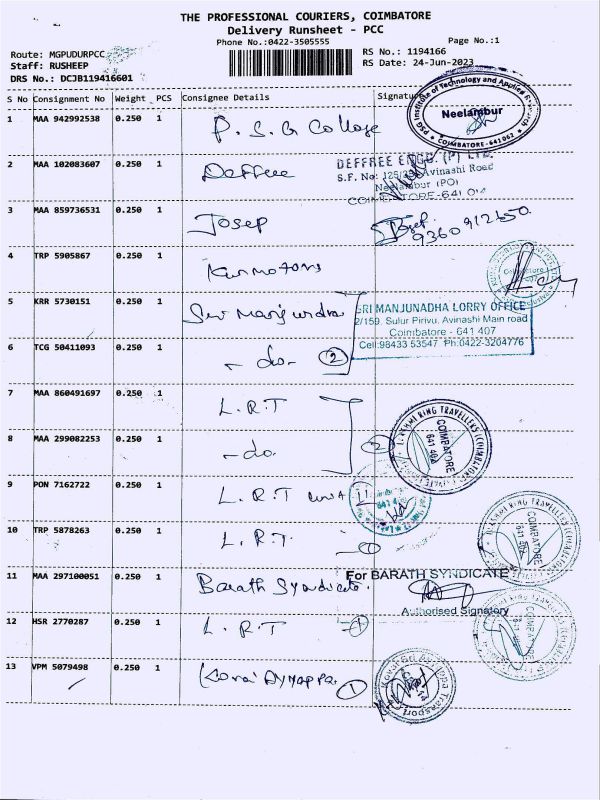 THE PROFESSIONAL COURIERS, COIMBATORE
Delivery Runsheet - PCC
Phone No.:0422-3505555
Page No.:1
Route: MGPUDURPCC
RS No.: 1194166
Staff: RUSHEEP
RS Date: 24-Jun-2023
DRS No.: DCJB119416601
S No Consignment No Weight PCS Consignee Details Signature
1 MAA 942992538 0.250 1 P. S. G College
PSG Institute of Technology and Applied Research
Neelambur
COIMBATORE-641062
2 MAA 102083607 0.250 1 Deffree
DEFFREE ENGG (P) LTD.
S.F. No: Avinashi Road
Neelambur (PO)
COIMBATORE-641
3 MAA 859736531 0.250 1 Josep
9360912650
4 TRP 5905867 0.250 1
Coimbatore
5 KRR 5730151 0.250 1 Sri Manjundra
SRI MANJUNADHA LORRY OFFICE
2/159, Sulur Pirivu, Avinashi Main road
Coimbatore - 641 407
Cell:98433 53547 Ph:0422-3204776
6 TCG 50411093 0.250 1 - do - 2
7 MAA 860491697 0.250 1 L. R. T
8 MAA 299082253 0.250 1 - do - 2
LAKSHMI RING TRAVELLERS (COIMBATORE)
COIMBATORE
641 402
9 PON 7162722 0.250 1 L. R. T
10 TRP 5878263 0.250 1 L. R. T - 1
LAKSHMI RING TRAVELLERS
COIMBATORE
641 402
11 MAA 297100051 0.250 1 Barath Syndicate.
For BARATH SYNDICATE
Authorised Signatory
12 HSR 2770287 0.250 1 L. R. T - 1
RING TRAVELLERS
COIMBATORE
13 VPM 5079498 0.250 1 Korai Ayyappa 1
Transport